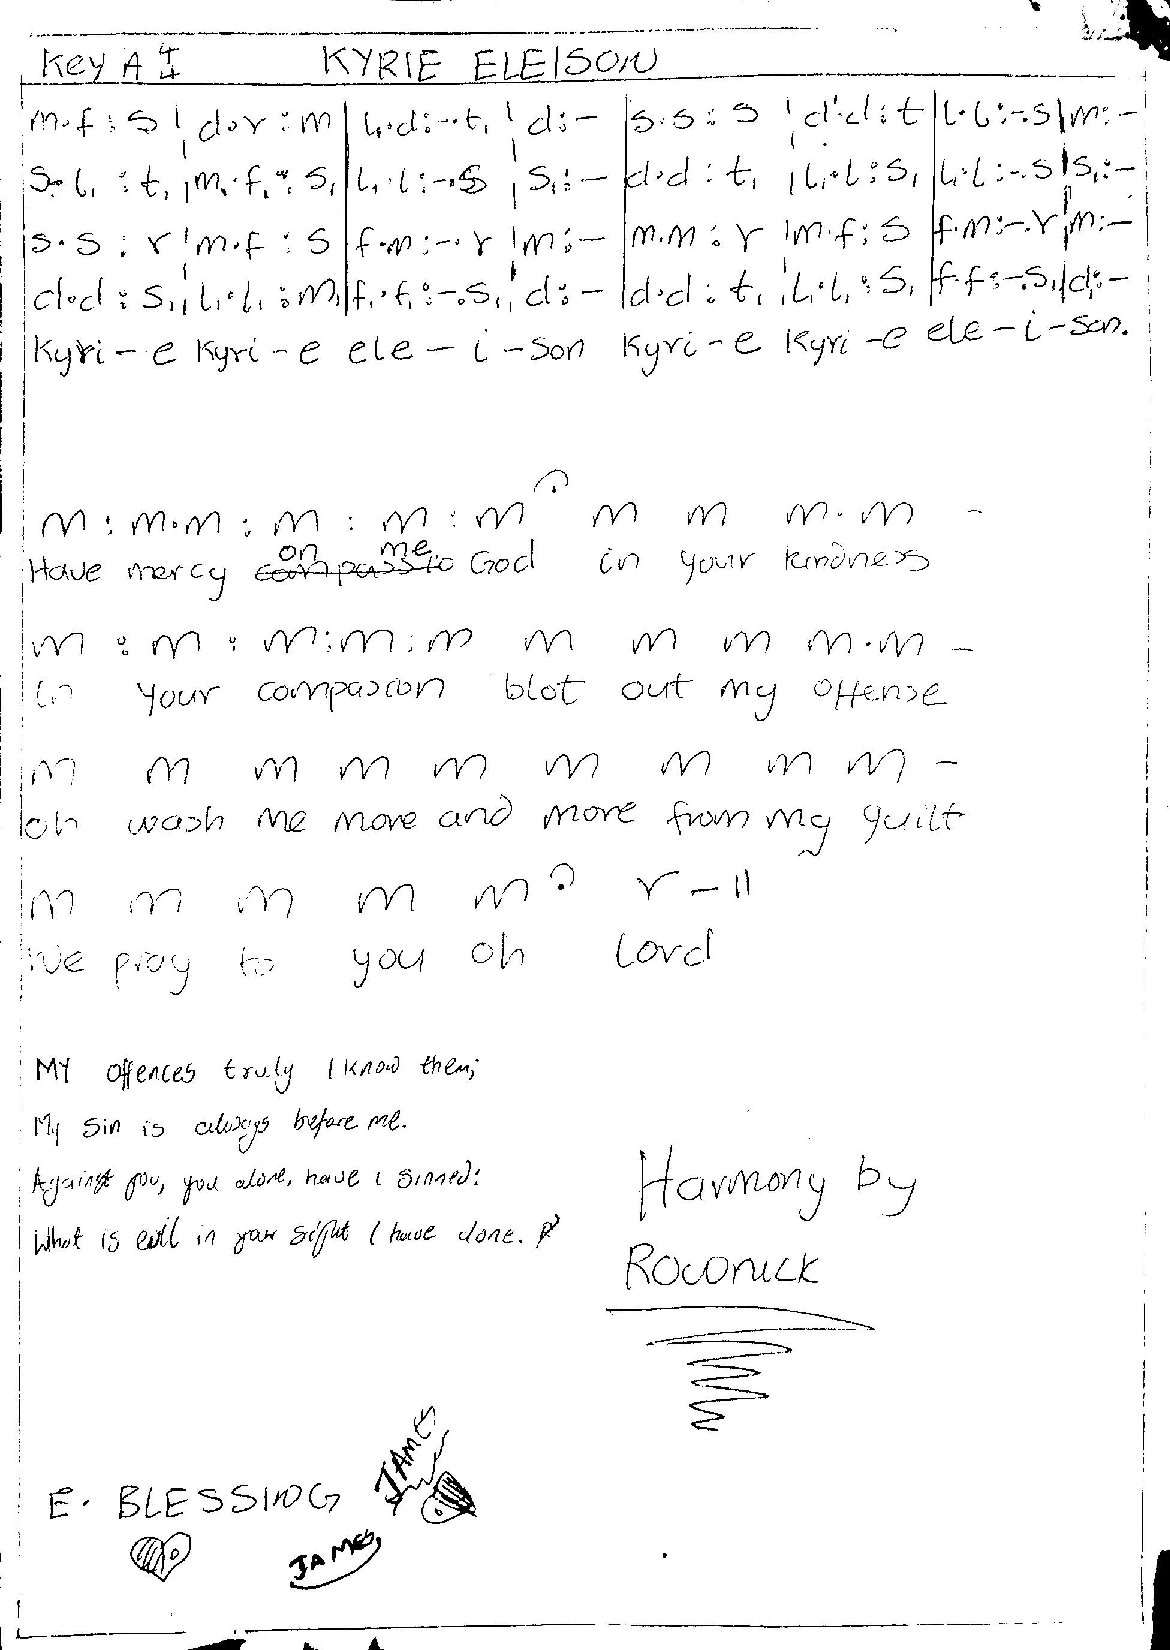 Key A I KYRIE ELEISON
m.f : s | d.r : m | l₁.d:-.t₁ | d:- | s.s : s | d'.d' : t | l.l:-.s | m:-
s₁.l₁ : t₁ | m₁.f₁ : s₁ | l₁.l:-.s | s₁:- | d.d : t₁ | l₁.l : s₁ | l₁.l:-.s | s₁:-
s.s : r | m.f : s | f.m:-.r | m:- | m.m : r | m.f : s | f.m:-.r | m:-
d.d : s₁ | l₁.l₁ : m₁ | f₁.f₁:-.s₁ | d:- | d.d : t₁ | l₁.l₁ : s₁ | f.f:-.s₁ | d:-
Kyri-e Kyri-e ele-i-son Kyri-e Kyri-e ele-i-son.
m : m.m : m : m : m m m m.m -
on me
Have mercy God in your kindness
m : m : m:m:m m m m m.m -
in your compascon blot out my offense
m m m m m m m m m -
oh wash me more and more from my guilt
m m m m m r - ||
We pray to you oh Lord
MY offences truly I know them;
My sin is always before me.
Against you, you alone, have i sinned:
What is evil in your sight I have done.
Harmony by
E. BLESSING
JAMES
JAMES